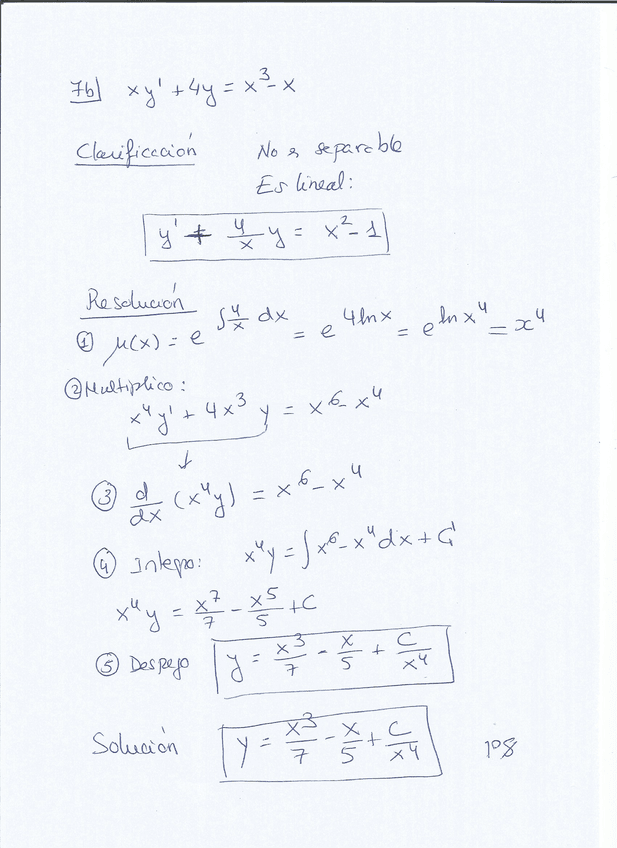 7b) xy' + 4y = x³ - x
Clasificación No es separable
Es lineal:
y' + 4/x y = x² - 1
Resolución
① μ(x) = e^∫4/x dx = e^4lnx = e^lnx⁴ = x⁴
② Multiplico:
x⁴y' + 4x³y = x⁶ - x⁴
↓
③ d/dx (x⁴y) = x⁶ - x⁴
④ Integro: x⁴y = ∫x⁶ - x⁴dx + C
x⁴y = x⁷/7 - x⁵/5 + C
⑤ Despejo y = x³/7 - x/5 + C/x⁴
Solución y = x³/7 - x/5 + C/x⁴ 108